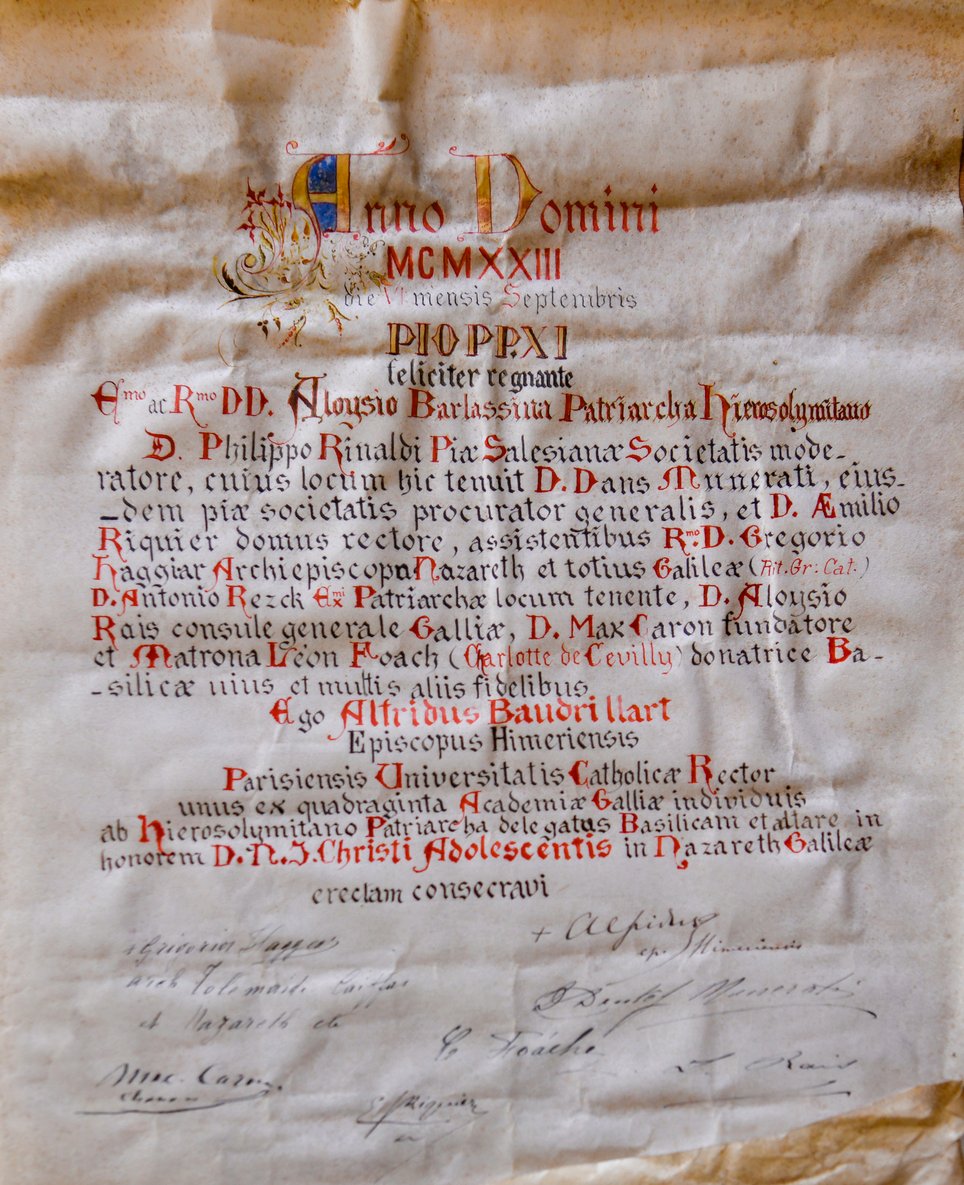 Anno Domini
MCMXXIII
die VI mensis Septembris
PIO PP. XI
feliciter regnante
Emo ac Rmo DD. Aloysio Barlassina Patriarcha Hierosolymitano
D. Philippo Rinaldi Piæ Salesianæ Societatis mode-
ratore, cuius locum hic tenuit D. Dans Munerati, eius-
-dem piæ societatis procurator generalis, et D. Æmilio
Riquier domus rectore, assistentibus Rmo. D. Gregorio
Haggiar Archiepiscopu Nazareth et totius Galileæ (Rit. Gr. Cat.)
D. Antonio Rezck Emi Patriarchæ locum tenente, D. Aloysio
Rais consule generale Galliæ, D. Max Caron fundatore
et Matrona Léon Foach (Charlotte de Cevilly) donatrice Ba-
-silicæ uius et multis aliis fidelibus
Ego Alfridus Baudrillart
Episcopus Himeriensis
Parisiensis Universitatis Catholicæ Rector
unus ex quadraginta Academiæ Galliæ individuis
ab Hierosolymitano Patriarcha delegatus Basilicam et altare in
honorem D. N. J. Christi Adolescentis in Nazareth Galileæ
erectam consecravi
+ Alfridus
ep. Himeriensis
+ Grigorios Haggear
arch Tolemaide Caiffa
et Nazareth etc
D Dante Munerati
C Foache
Max. Caron
L Rais
E Riquier